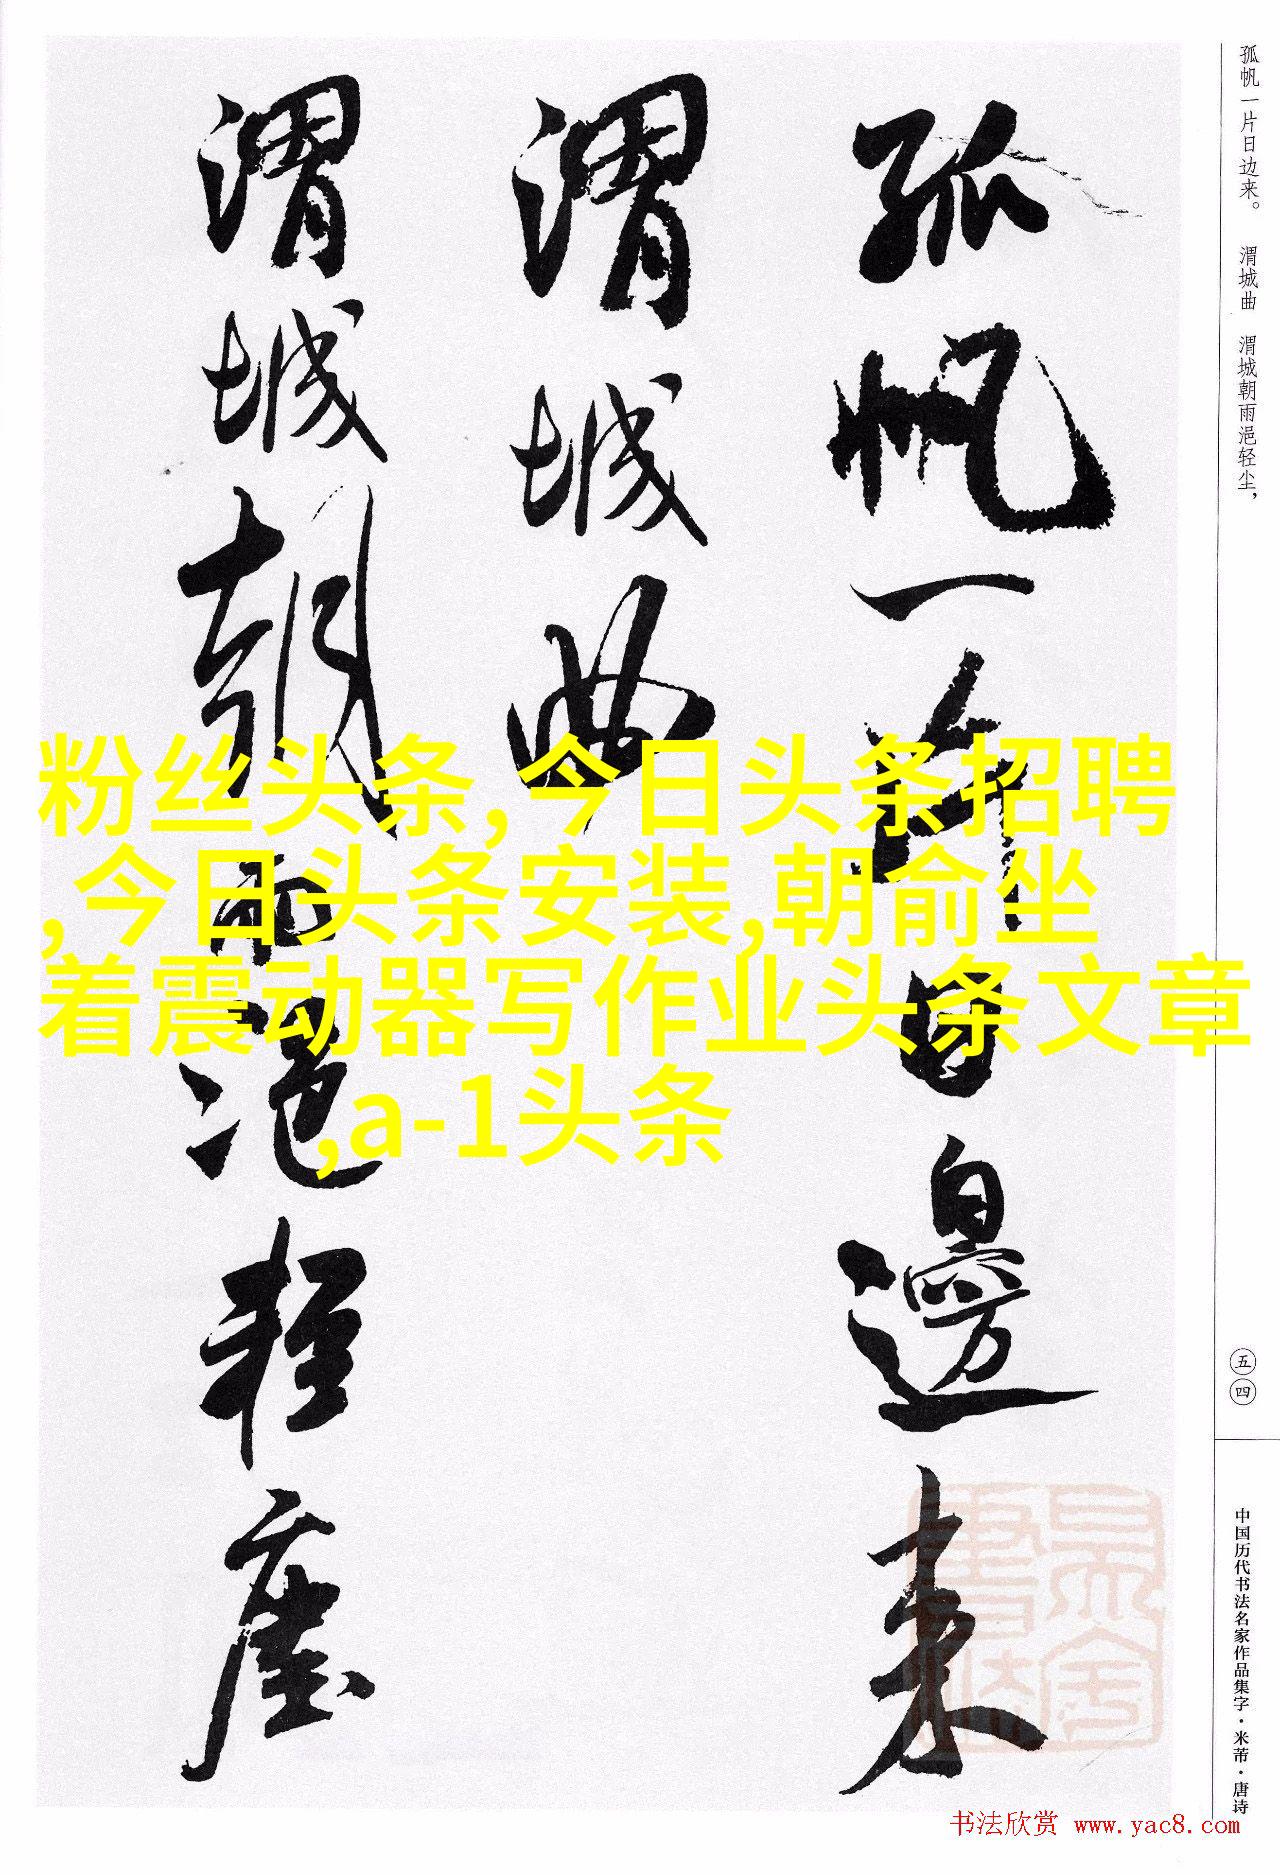 孤帆一片日边来。 渭城曲 渭城朝雨浥轻尘，
孤帆一片日邊来
渭城曲
渭城朝雨浥轻塵
粉丝头条,今日头条招聘
,今日头条安装,朝俞坐
着震动器写作业头条文章
,a-1头条
五四
中国历代书法名家作品集字·米芾·唐诗
书法欣赏 www.yac8.com